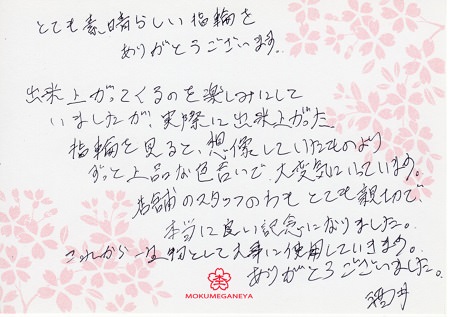 とても素晴らしい指輪を
ありがとうございます。
出来上がってくるのを楽しみにして
いましたが、実際に出来上がった
指輪を見ると、想像していたものより
ずっと上品な色合いで大変気に入っています。
店舗のスタッフの方もとても親切で、
本当に良い記念になりました。
これから一生物として大事に使用していきます。
ありがとうございました。
MOKUMEGANEYA